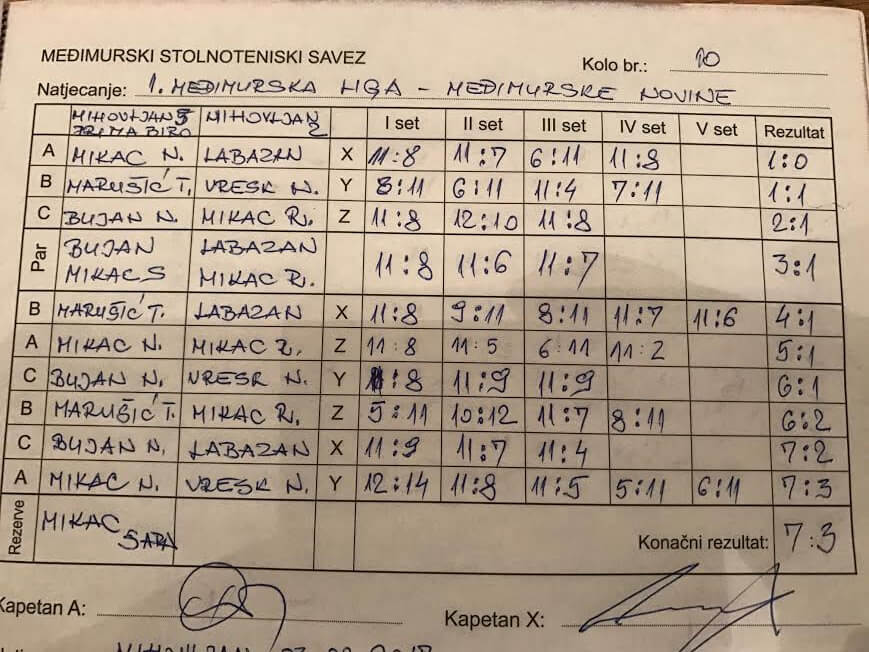 MEĐIMURSKI STOLNOTENISKI SAVEZ
Kolo br.: 10
Natjecanje: 1. MEĐIMURSKA LIGA - MEĐIMURSKE NOVINE
MIHOVLJAN PRIMA BIRO MIHOVLJAN 2 I set II set III set IV set V set Rezultat
A MIKAC N. LABAZAN X 11:8 11:7 6:11 11:8 1:0
B MARUŠIĆ T. VRESK N. Y 8:11 6:11 11:4 7:11 1:1
C BUJAN N. MIKAC R. Z 11:8 12:10 11:8 2:1
Par BUJAN LABAZAN
MIKAC S MIKAC R. 11:8 11:6 11:7 3:1
B MARUŠIĆ T. LABAZAN X 11:8 9:11 8:11 11:7 11:6 4:1
A MIKAC N. MIKAC R. Z 11:8 11:5 6:11 11:2 5:1
C BUJAN N. VRESK N. Y 11:8 11:9 11:9 6:1
B MARUŠIĆ T. MIKAC R. Z 5:11 10:12 11:7 8:11 6:2
C BUJAN N. LABAZAN X 11:9 11:7 11:4 7:2
A MIKAC N. VRESK N. Y 12:14 11:8 11:5 5:11 6:11 7:3
Rezerve MIKAC SARA
Konačni rezultat: 7:3
Kapetan A:
Kapetan X: